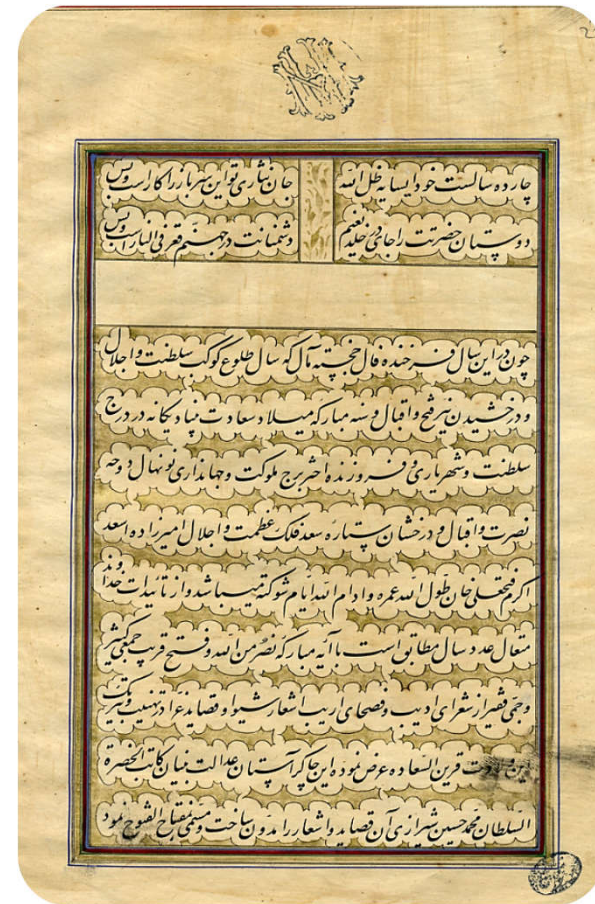 چارده سالست خود ایسایه ظل الله جان نثاری تو این سرباز را کار است و بس
دوستان حضرتت را جای در خلد نعیم دشمنانت در جهنم قعر فی النار است و بس
چون در این سال فرخنده فال خجسته مآل که سال طلوع کوکب سلطنت و اجلال
و درخشیدن نیر فتح و اقبال و سنه مبارکه میلاد سعادت بنیاد یکانه در درج
سلطنت و شهریاری و فروزنده اختر برج ملوکت و جهانداری نونهال دوحه
نصرت و اقبال و درخشان ستاره سعد فلک عظمت و اجلال امیرزاده اسعد
اکرم فتحعلی خان طول الله عمره و ادام الله ایام شوکته میباشد و از تائیدات خداوند
متعال عدد سال مطابق است با آیه مبارکه نصر من الله و فتح قریب جمعی کثیر
و جمی قصیر از شعرای ادیب و فصحای اریب اشعار شیوا و قصاید غرا در تهنیت و تبریک
این قرین السعاده عرض نموده این چاکر آستان عدالت بنیان کاتب الحضرة
السلطان محمد حسین شیرازی آن قصاید و اشعار را مدون ساخت و مسمی بمفتاح الفتوح نمود